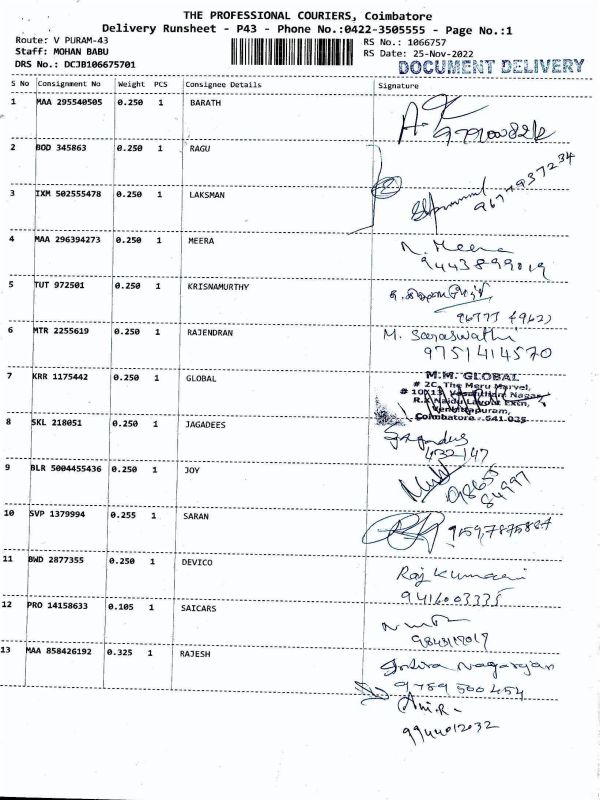 THE PROFESSIONAL COURIERS, Coimbatore
Delivery Runsheet - P43 - Phone No.:0422-3505555 - Page No.:1
Route: V PURAM-43 RS No.: 1066757
Staff: MOHAN BABU RS Date: 25-Nov-2022
DRS No.: DCJB106675701 DOCUMENT DELIVERY
S No Consignment No Weight PCS Consignee Details Signature
1 MAA 295540505 0.250 1 BARATH
2 BOD 345863 0.250 1 RAGU
3 IXM 502555478 0.250 1 LAKSMAN
9677937234
4 MAA 296394273 0.250 1 MEERA N. Meena
9443899019
5 TUT 972501 0.250 1 KRISNAMURTHY
6 MTR 2255619 0.250 1 RAJENDRAN M. Saraswathi
9751414570
7 KRR 1175442 0.250 1 GLOBAL M.M. GLOBAL
# 2C, The Meru Marvel,
# 10X13, Vasantham Nagar,
R.K Naidu Layout Extn,
Venkitapuram,
Coimbatore - 641 025
8 SKL 218051 0.250 1 JAGADEES
432147
9 BLR 5004455436 0.250 1 JOY
9865
84997
10 SVP 1379994 0.255 1 SARAN
11 BWD 2877355 0.250 1 DEVICO Raj Kumari
9416003335
12 PRO 14158633 0.105 1 SAICARS
13 MAA 858426192 0.325 1 RAJESH Indira Nagarajan
9789500454
9944012032